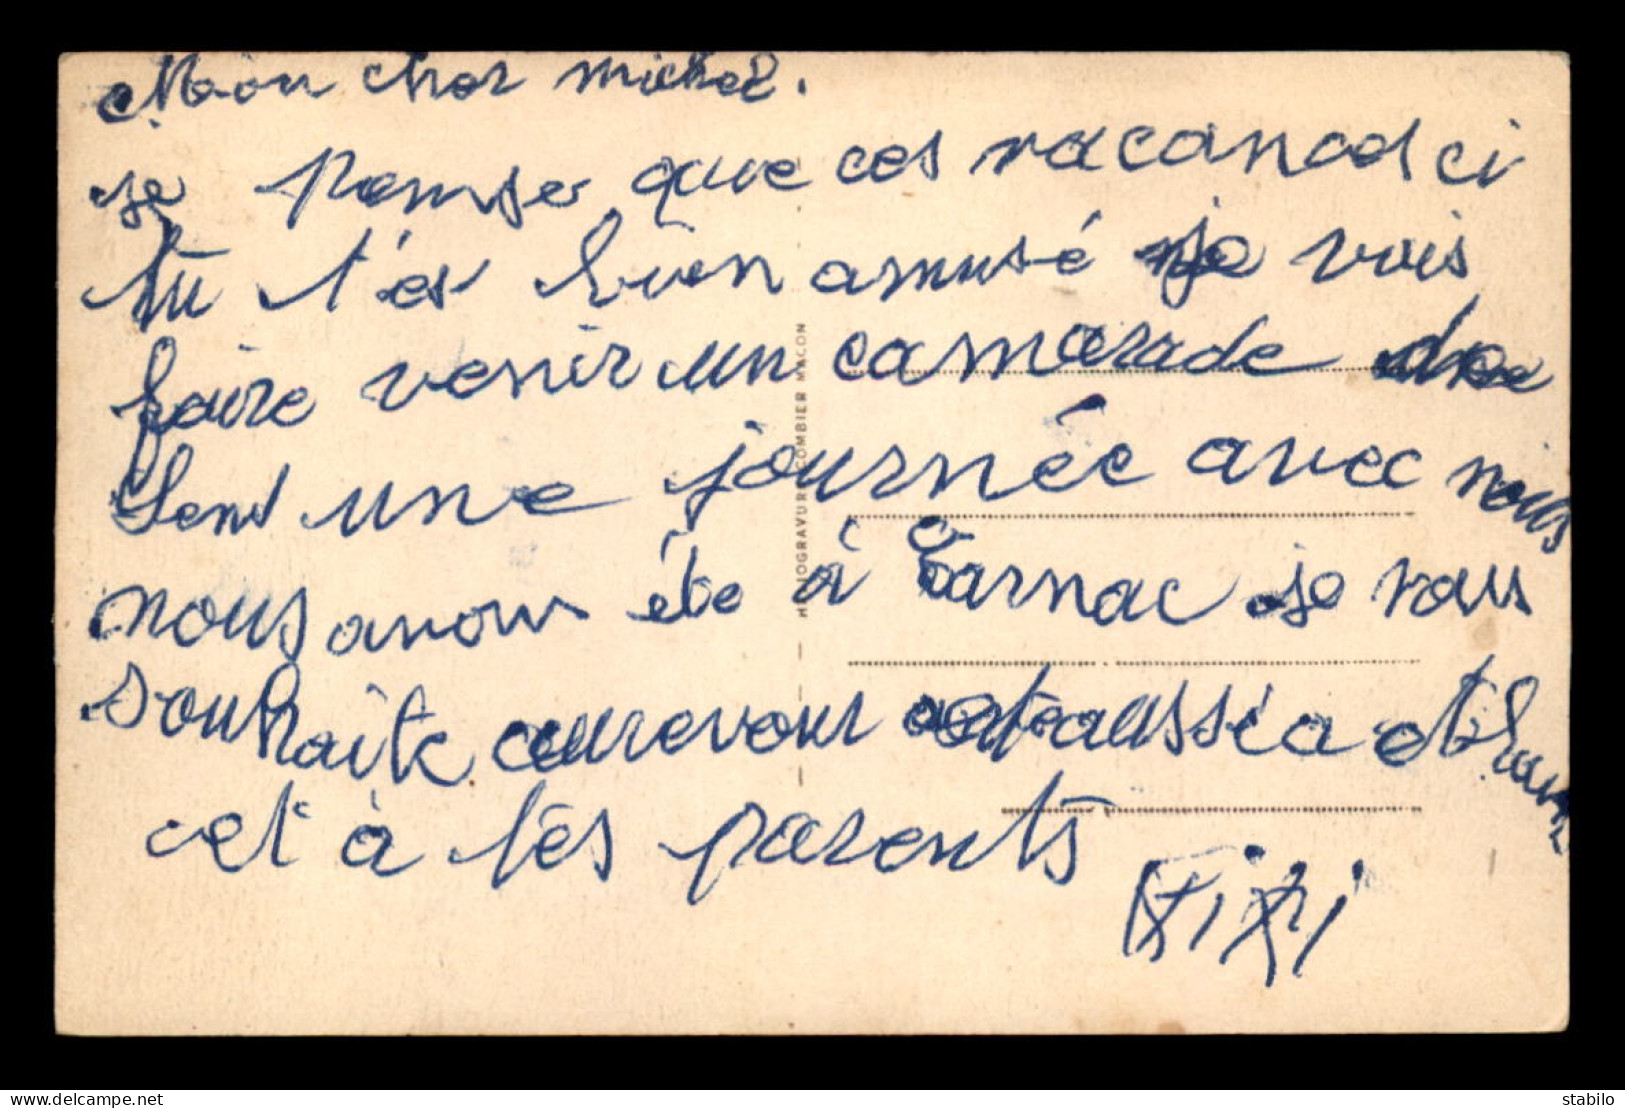 Mon cher michel.
je pense que ces vacances ci
tu t'es bien amusé je vais
faire venir un camarade
une journée avec nous
nous avons été à Carnac je vous
souhaite aurevoir aussi a
et à tes parents
HELIOGRAVURE COMBIER MACON
delcampe.net
stabilo